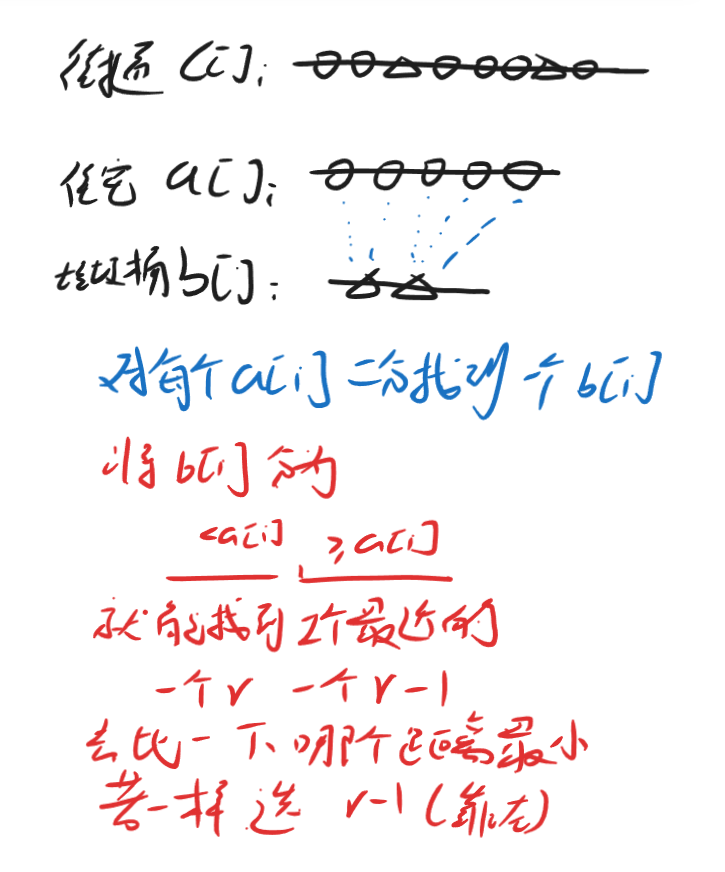 街道 c[i]:
住宅 a[i]:
垃圾桶 b[i]:
对每个a[i] 二分找到一个b[i]
将b[i]分为
<a[i] ≥a[i]
就能找到2个最近的
一个r 一个r-1
去比一下哪个距离最小
若一样选 r-1(靠左)